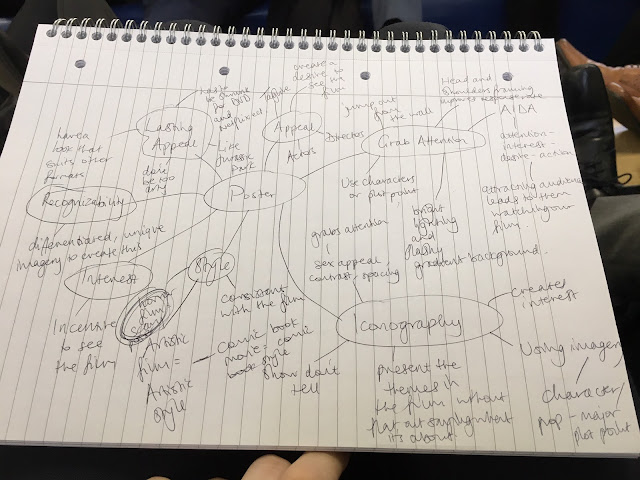 Poster
Lasting
Appeal
have to
be
for DVD
and Netflix
Like
Jurassic
Park
don't
be too
arty
Appeal
create a
desire to
see the
film
Actors
Directors
Grab Attention
jump out
from
the wall
Head and
Shoulders framing
AIDA
attention-
interest-
desire - action
attracting audience
leads to them
watching our
film.
Use characters
or plot point
grabs attention
sex appeal,
contrast, spacing
bright
lighting
and
flashy
gradient background.
Recognizability
have a
look that
suits other
formats
differentiated, unique
imagery to create this
Interest
Incentive
to see
the film
Style
Artistic
film =
Artistic
style
consistent
with the film
Comic book
movie = comic
book style
Iconography
Show don't
tell
Present the
themes in
the film without
flat out saying what
it's about
Creates
interest
Using imagery
character/
prop - major
plot point